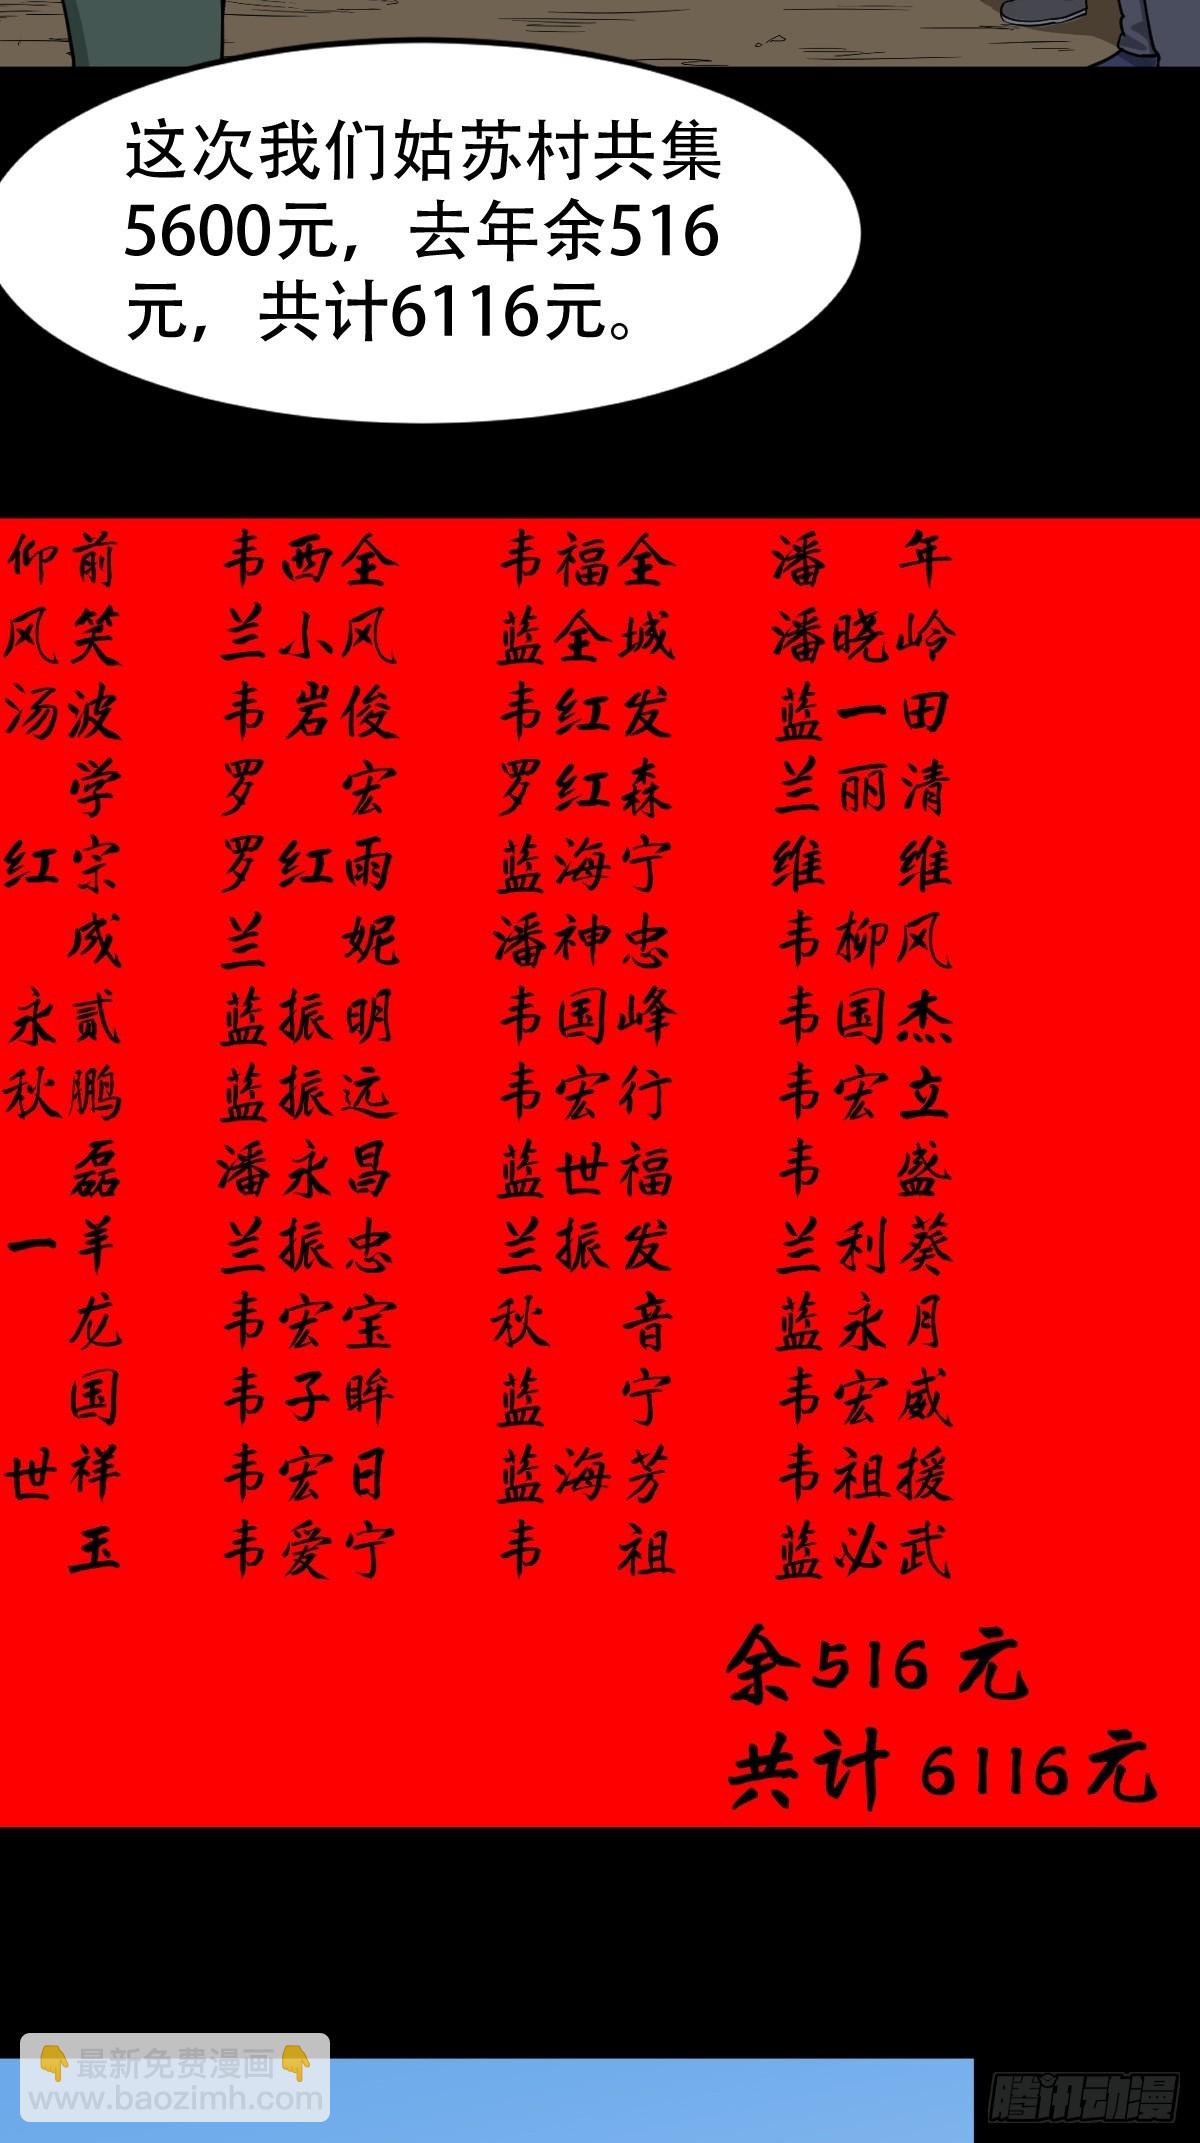 这次我们姑苏村共集
5600元，去年余516
元，共计6116元。
仰前 韦西全 韦福全 潘年
风笑 兰小风 蓝全城 潘晓岭
汤波 韦岩俊 韦红发 蓝一田
学 罗宏 罗红森 兰丽清
红宗 罗红雨 蓝海宁 维维
成 兰妮 潘神忠 韦柳风
永贰 蓝振明 韦国峰 韦国杰
秋鹏 蓝振远 韦宏行 韦宏立
磊 潘永昌 蓝世福 韦盛
一羊 兰振忠 兰振发 兰利葵
龙 韦宏宝 秋音 蓝永月
国 韦子眸 蓝宁 韦宏威
世祥 韦宏日 蓝海芳 韦祖援
玉 韦爱宁 韦祖 蓝必武
余516元
共计6116元
👇最新免费漫画👇
www.baozimh.com
腾讯动漫